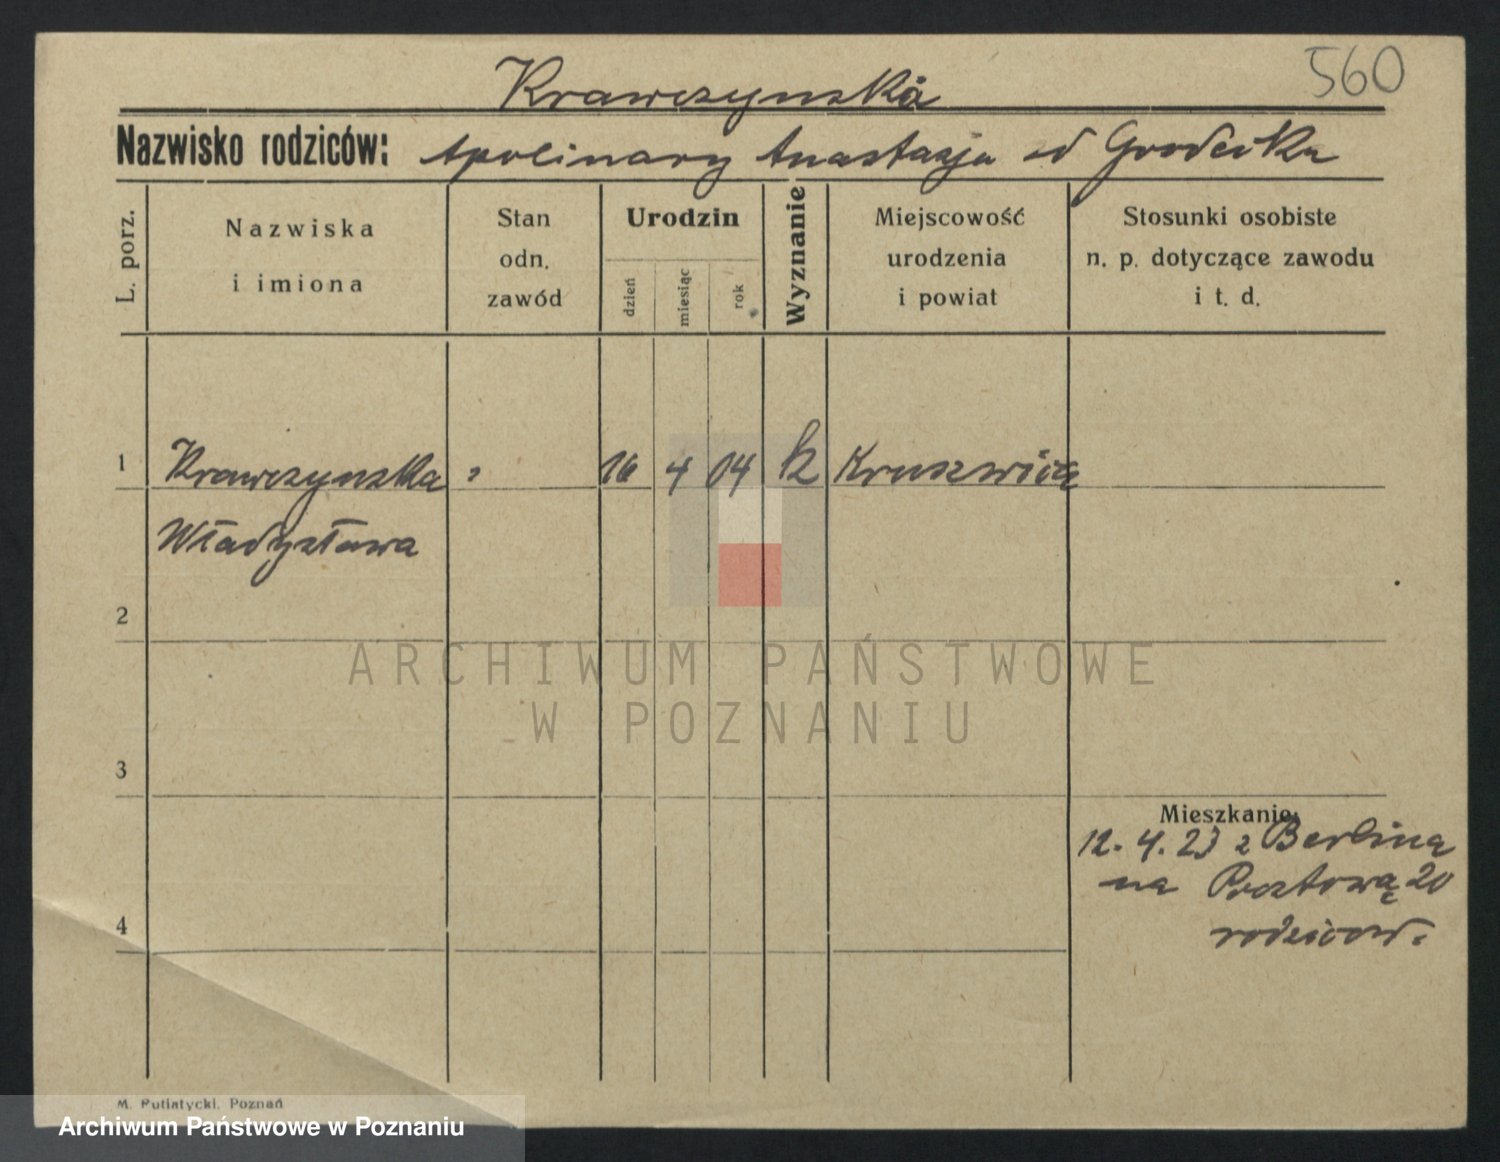 560
Krawczynska
Nazwisko rodziców: Apolinary Anastazja od Grodecka
L. porz.
Nazwiska
i imiona
Stan
odn.
zawód
Urodzin
dzień
miesiąc
rok
Wyznanie
Miejscowość
urodzenia
i powiat
Stosunki osobiste
n. p. dotyczące zawodu
i t. d.
1 Krawczynska 16 4 04 k Kruszwica
Władysława
2
ARCHIWUM PAŃSTWOWE
W POZNANIU
3
Mieszkanie:
12. 4. 23 z Berlina
na Pocztową 20
4
rodziców.
M. Putiatycki, Poznań
Archiwum Państwowe w Poznaniu